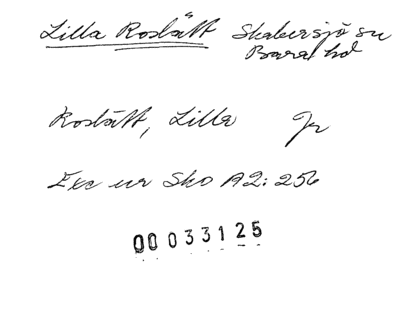 Lilla Roslätt Skabersjö sn
Bara hd
Roslätt, Lilla Jr
Exc ur Sko A2: 256
00 033125